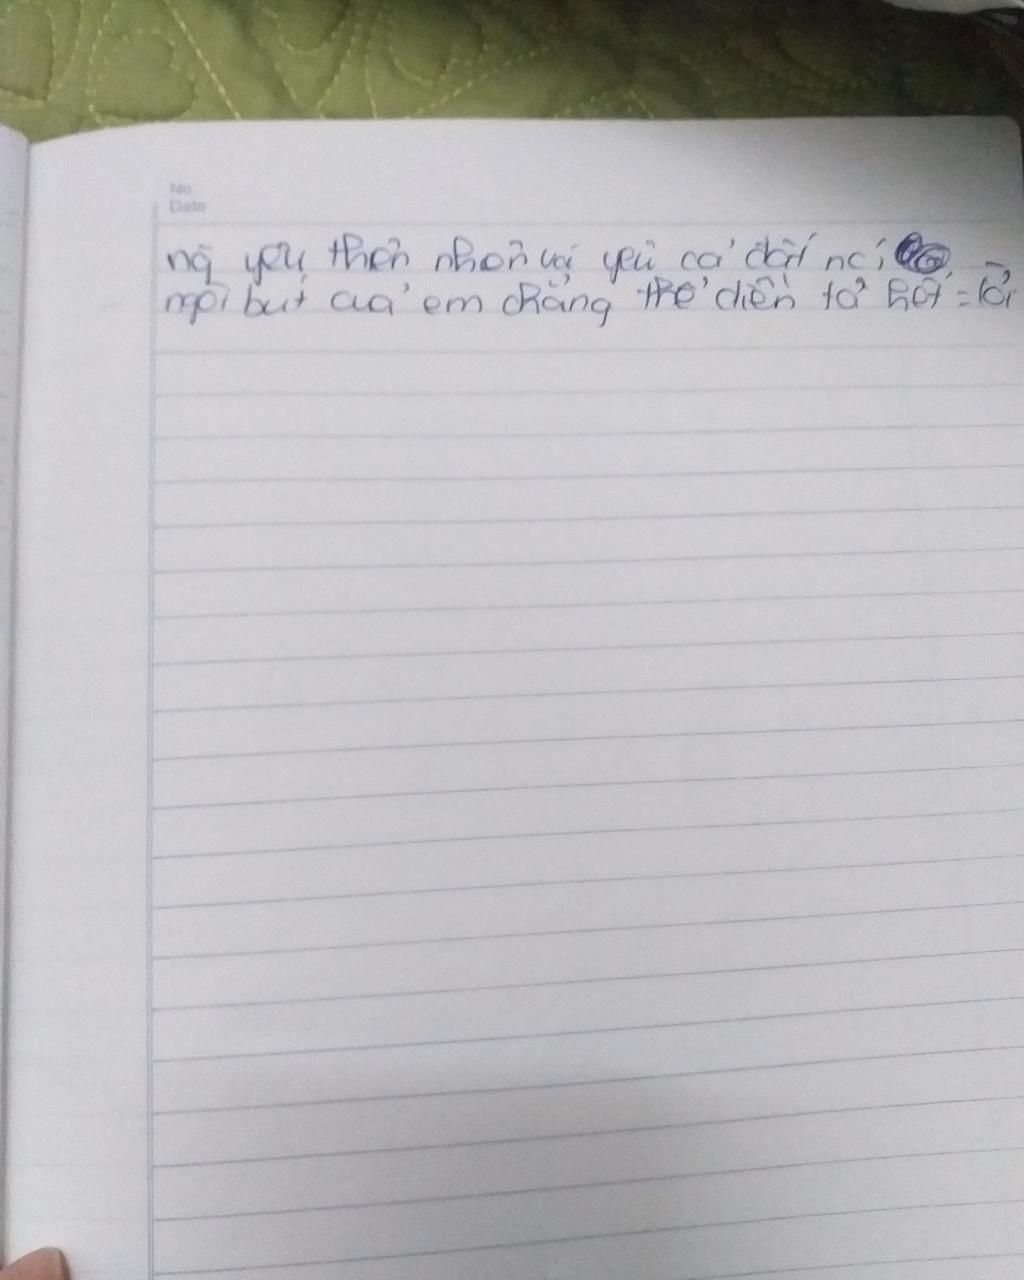 No.
Date
ng yêu thơn nhơn vại yêu cả đất nc,
ngòi but của em chẳng thể diễn tả hết = lời